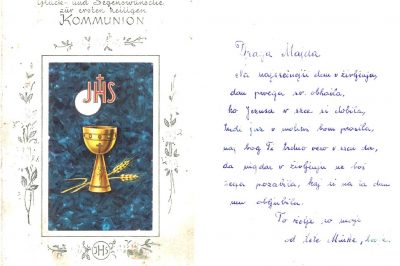 Glück- und Segenswünsche
zur ersten heiligen
KOMMUNION
JHS
JHS
Draga Majda
Na najsrečnejši dan v življenju,
dan prvega sv. obhajila,
ko Jezusa v srce si dobila,
tudi jaz v molitvi bom prosila,
naj bog Ti trdno vero v srcu da,
da nigdar v življenju ne boš
Njega pozabila, kaj si na ta dan
mu obljubila.
To želje so moje
od tete Micke,